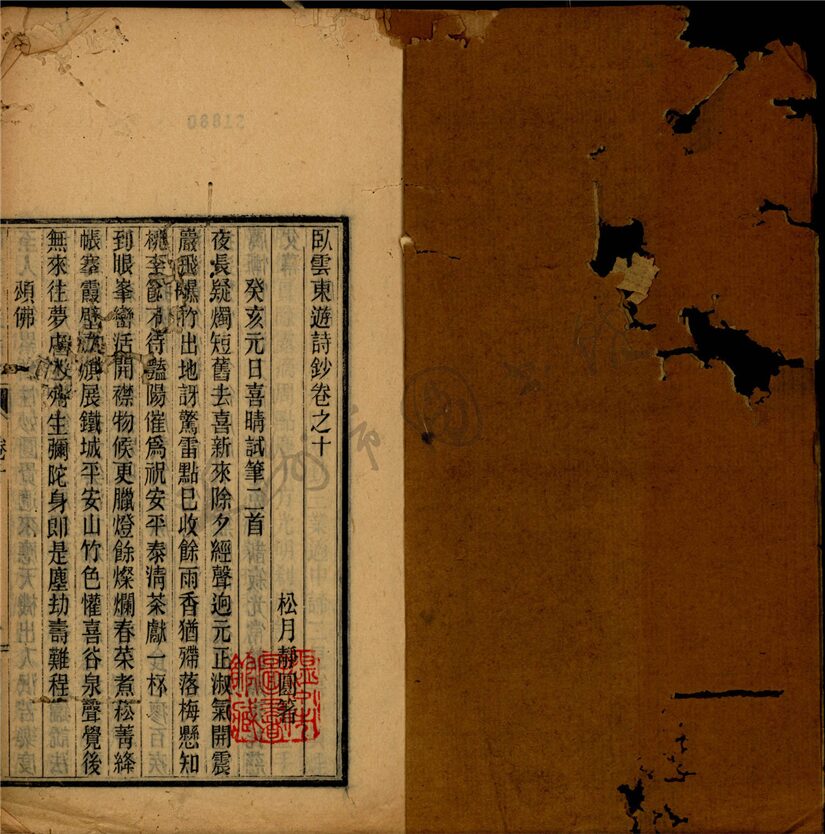 臥雲東遊詩鈔卷之十
松月靜圓著
癸亥元日喜晴試筆二首
夜長疑燭短舊去喜新來除夕經聲迥元正淑氣開震
巖飛爆竹出地訝驚雷點巳收餘雨香猶殢落梅懸知
桃李節不待豔陽催爲祝安平泰淸茶獻一杯
到眼峯巒活開襟物候更臘燈餘燦爛春菜煮菘菁絳
帳搴霞壁旗展鐵城平安山竹色懽喜谷泉聲覺後
無來往夢生彌陀身即是塵劫壽難程
頌佛